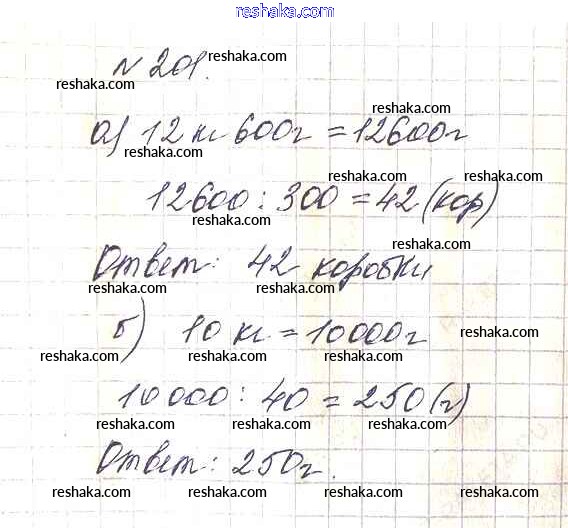 reshaka.com
N 201.
reshaka.com reshaka.com
reshaka.com
а) 12 кг 600г = 12600г
reshaka.com reshaka.com
reshaka.com reshaka.com
12600 : 300 = 42 (кор)
reshaka.com reshaka.com
reshaka.com
Ответ: 42 коробки
reshaka.com reshaka.com
б) 10 кг = 10000г
reshaka.com reshaka.com
reshaka.com reshaka.com
10000 : 40 = 250 (г)
reshaka.com reshaka.com
Ответ: 250г.
reshaka.com reshaka.com
reshaka.com reshaka.com